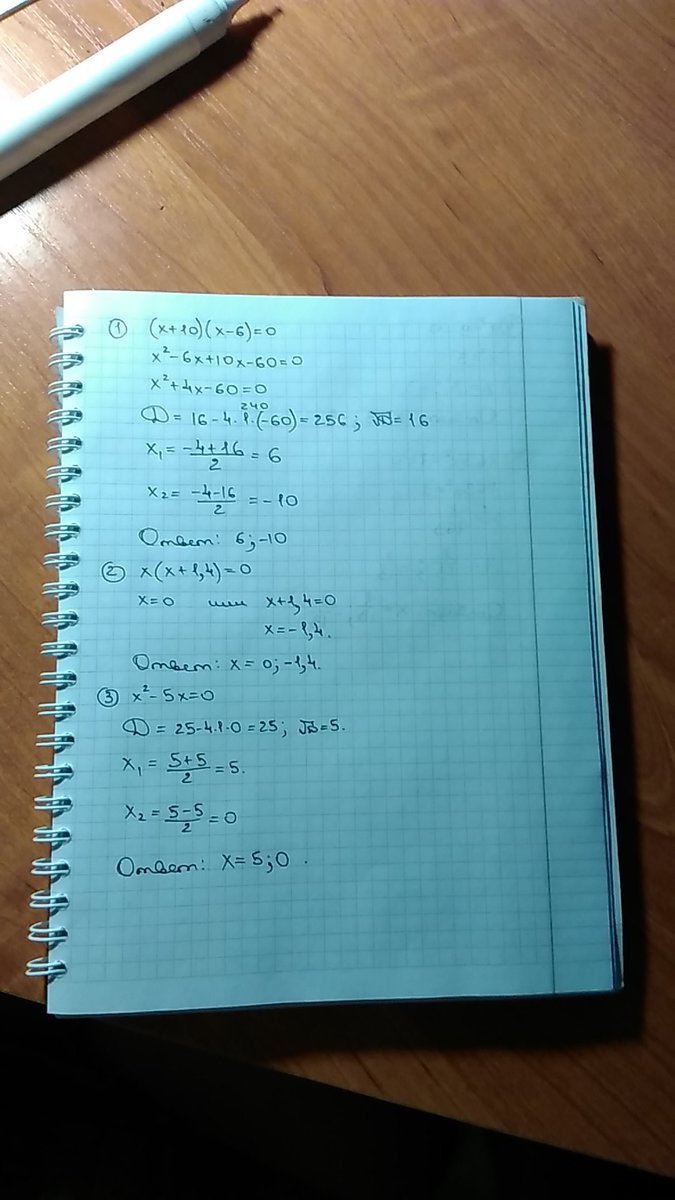 ① (x+10)(x-6)=0
x²-6x+10x-60=0
x²+4x-60=0
240
D = 16-4·1·(-60)=256; √D=16
x₁ = (-4+16)/2 = 6
x₂ = (-4-16)/2 = -10
Ответ: 6;-10
② x(x+1,4)=0
x=0 или x+1,4=0
x=-1,4.
Ответ: x = 0;-1,4.
③ x²-5x=0
D = 25-4·1·0=25; √D=5.
x₁ = (5+5)/2 = 5.
x₂ = (5-5)/2 = 0
Ответ: x=5;0.